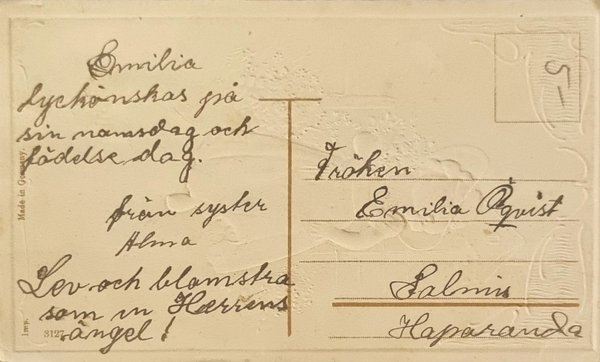 Emilia
lyckönskas på
sin namsdag och
födelse dag.
från syster
Alma
Lev och blomstra
som in Hærrens
ängel!
Made in Germany.
Imp. 3127
5-
Fröken
Emilia Öqvist
Salmis
Haparanda